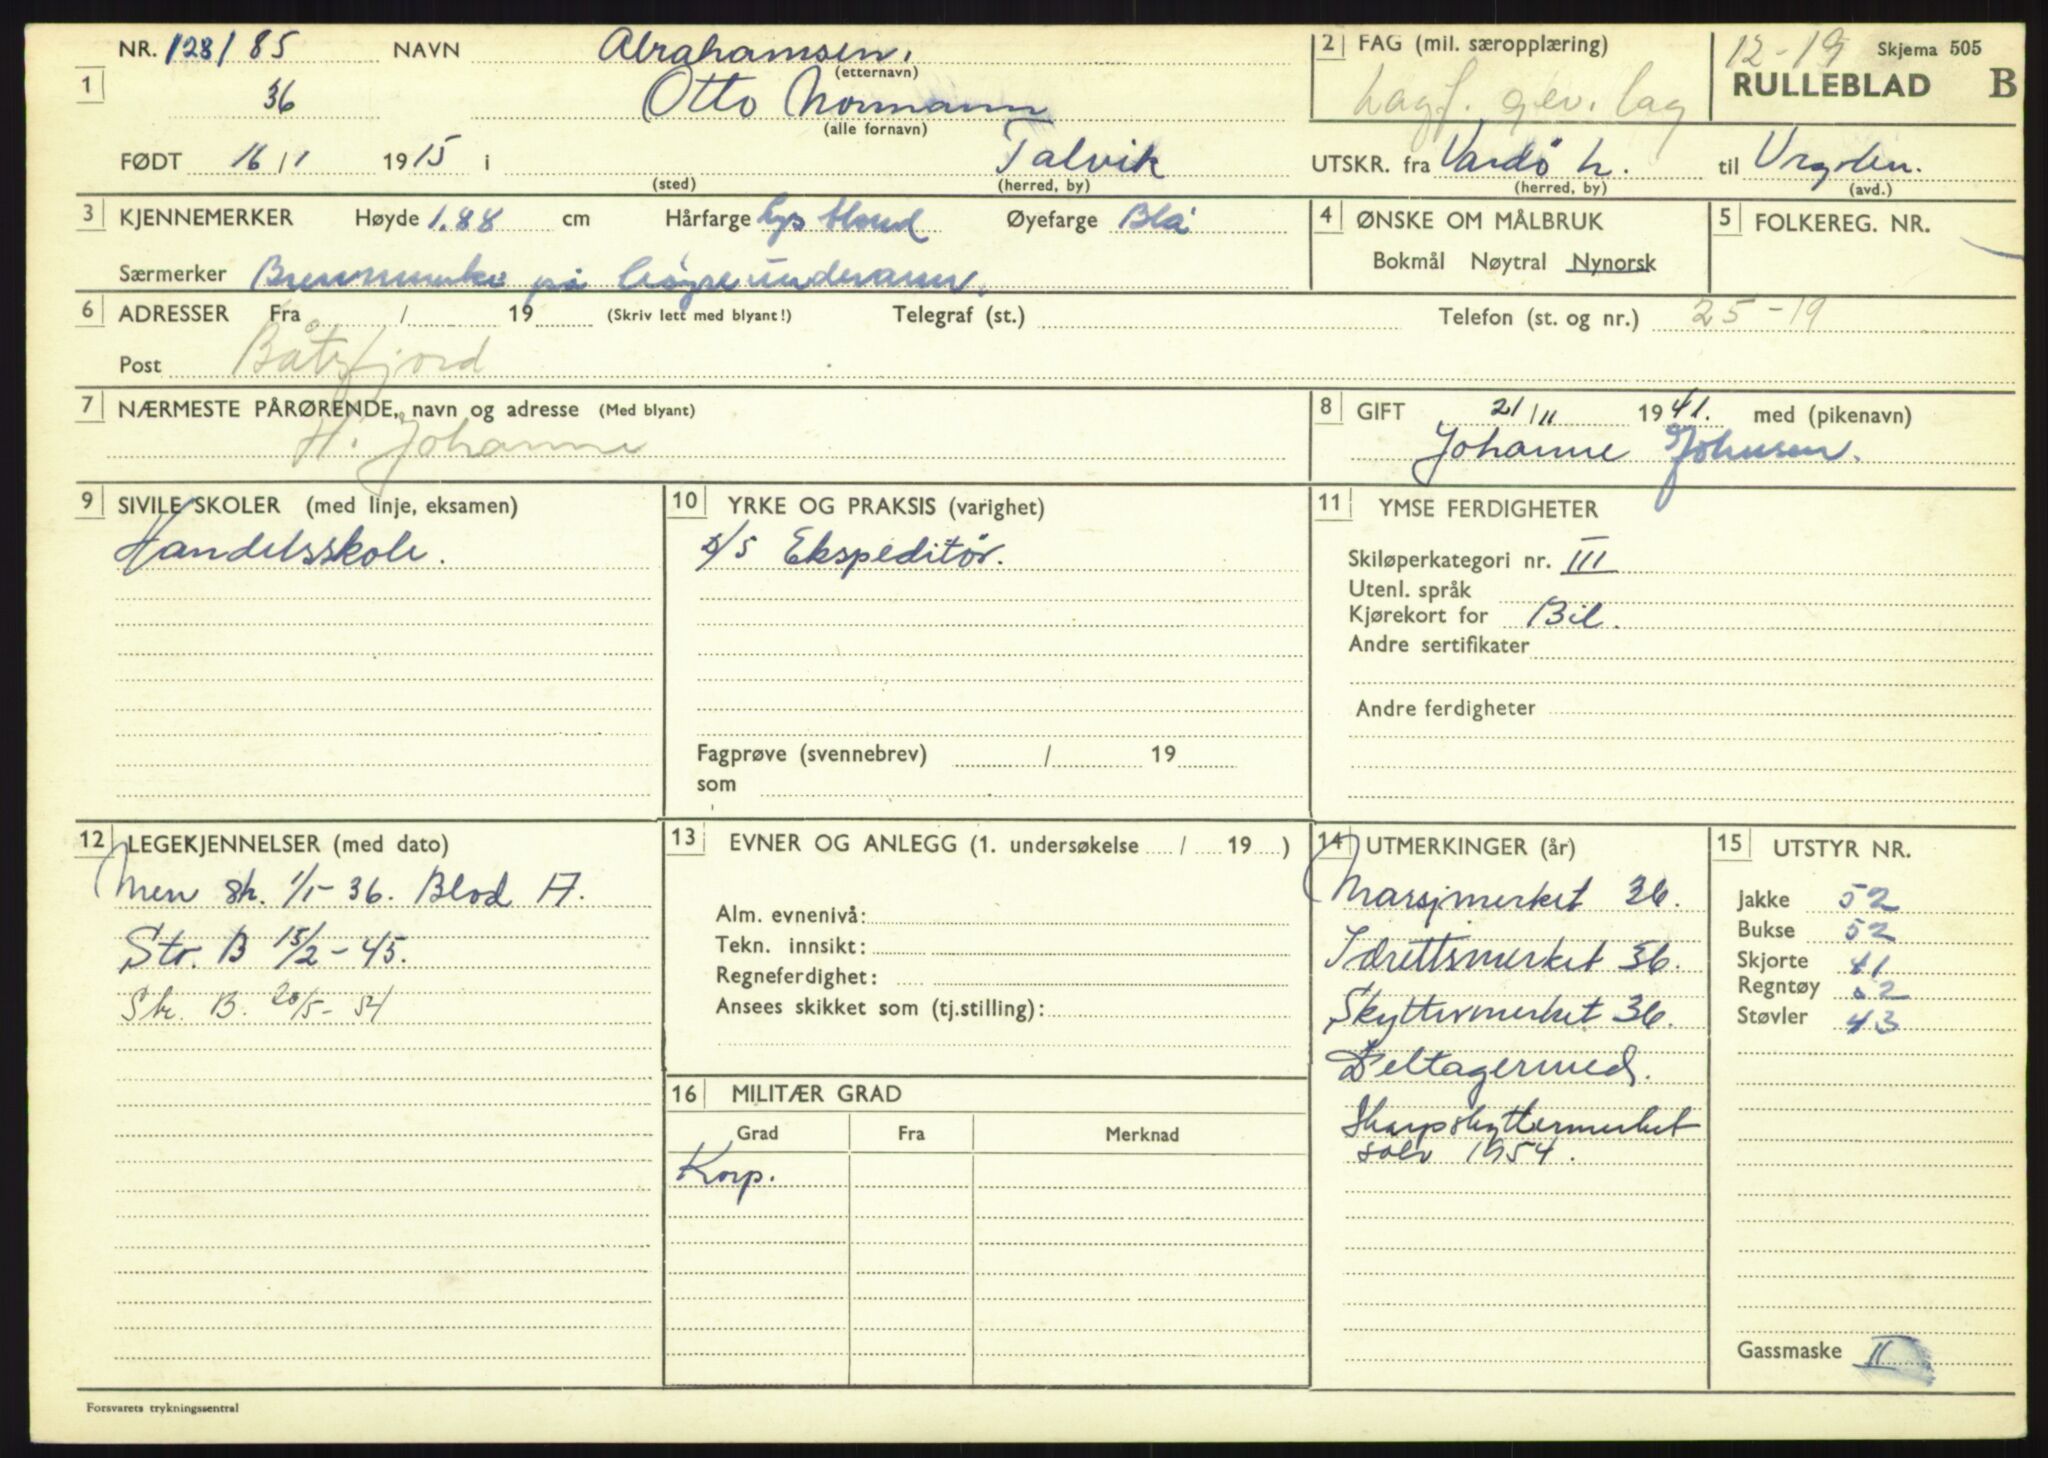 NR. 128/85 NAVN Abrahamsen, (etternavn)
2 FAG (mil. særopplæring)
12-19 Skjema 505
1 36 Otto Normann (alle fornavn)
Lagf. gev. lag
RULLEBLAD B
FØDT 16/1 1915 i (sted) Talvik (herred, by)
UTSKR. fra Vardö h. (herred, by) til (avd.)
3 KJENNEMERKER Høyde 1.88 cm Hårfarge lys blond Øyefarge Blå
Særmerker Brennmerke på höyre underarm.
4 ØNSKE OM MÅLBRUK
Bokmål Nøytral Nynorsk
5 FOLKEREG. NR.
6 ADRESSER Fra / 19 (Skriv lett med blyant!) Telegraf (st.) Telefon (st. og nr.) 25-19
Post Båtsfjord
7 NÆRMESTE PÅRØRENDE, navn og adresse (Med blyant)
H. Johanne
8 GIFT 21/11 1941. med (pikenavn)
Johanne Johnsen.
9 SIVILE SKOLER (med linje, eksamen)
Handelsskole.
10 YRKE OG PRAKSIS (varighet)
D/S Ekspeditör.
Fagprøve (svennebrev) / 19
som
11 YMSE FERDIGHETER
Skiløperkategori nr. III
Utenl. språk
Kjørekort for Bil.
Andre sertifikater
Andre ferdigheter
12 LEGEKJENNELSER (med dato)
Men sk. 1/1-36. Blod A.
Str. B 15/2-45.
Str. B. 20/5-54
13 EVNER OG ANLEGG (1. undersøkelse / 19 )
Alm. evnenivå:
Tekn. innsikt:
Regneferdighet:
Ansees skikket som (tj.stilling):
16 MILITÆR GRAD
Grad Fra Merknad
Korp.
14 UTMERKINGER (år)
Marsjmerket 36.
Idrettsmerket 36.
Skyttermerket 36.
Deltagermed.
Skarpskyttermerket
sølv 1954.
15 UTSTYR NR.
Jakke 52
Bukse 52
Skjorte 41
Regntøy 52
Støvler 43
Gassmaske II
Forsvarets trykningssentral